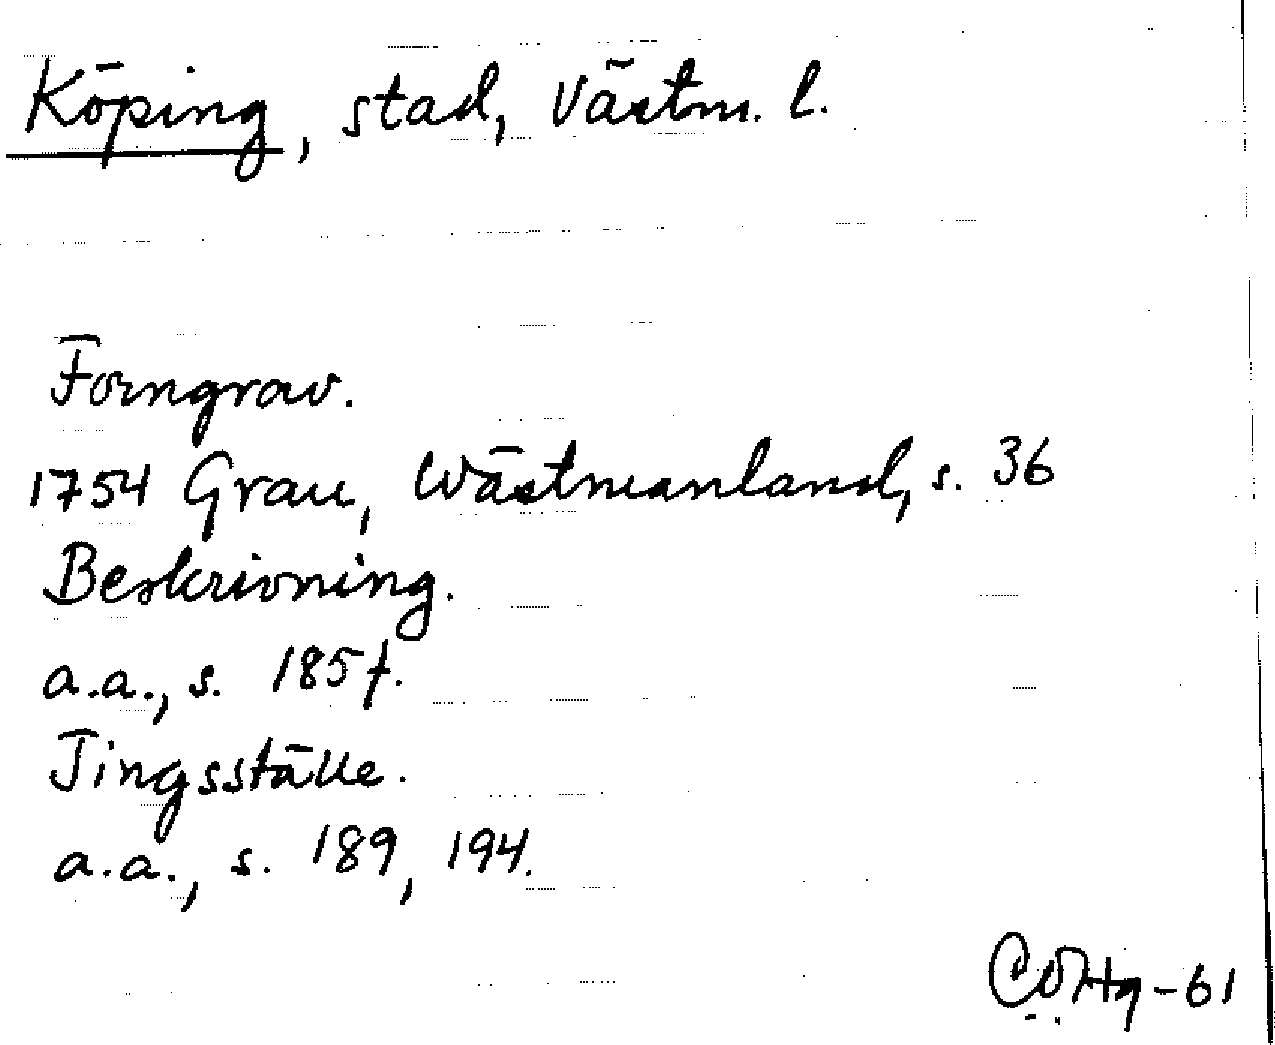 Köping, stad, Västm. l.
Forngrav.
1754 Grau, Wästmanland, s. 36
Beskrivning.
a.a., s. 185 f.
Tingsställe.
a.a., s. 189, 194.
-61